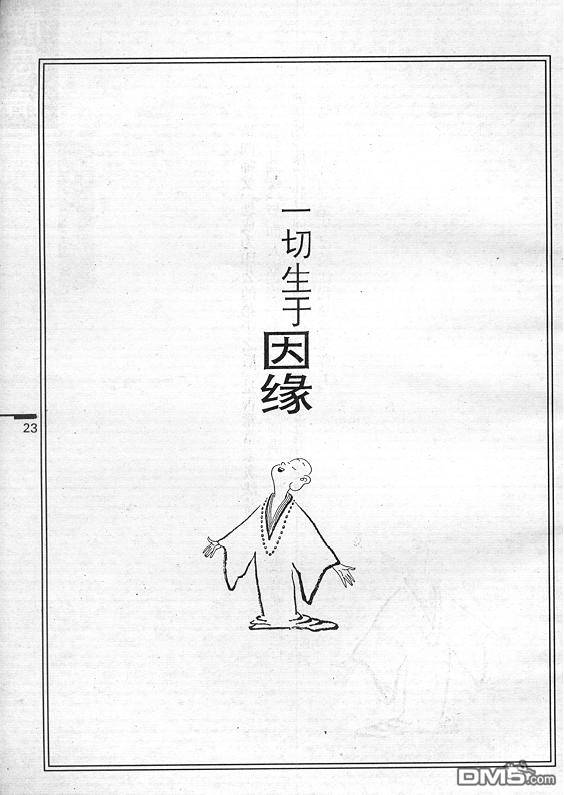 一切生于因缘
23
DM5.com